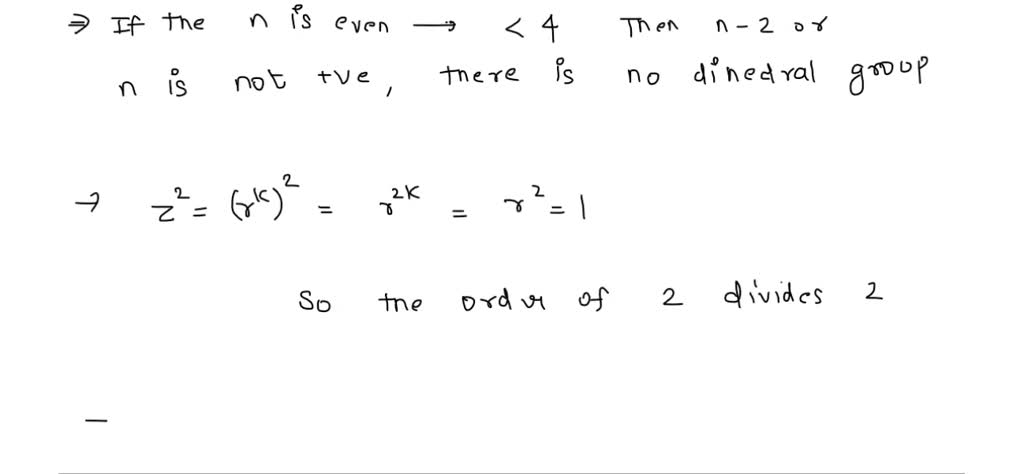 ⇒ If the n is even → < 4 Then n - 2 or
n is not +ve, there is no dinedral group
→ z² = (r^k)² = r^2k = r² = 1
So the order of 2 divides 2
—